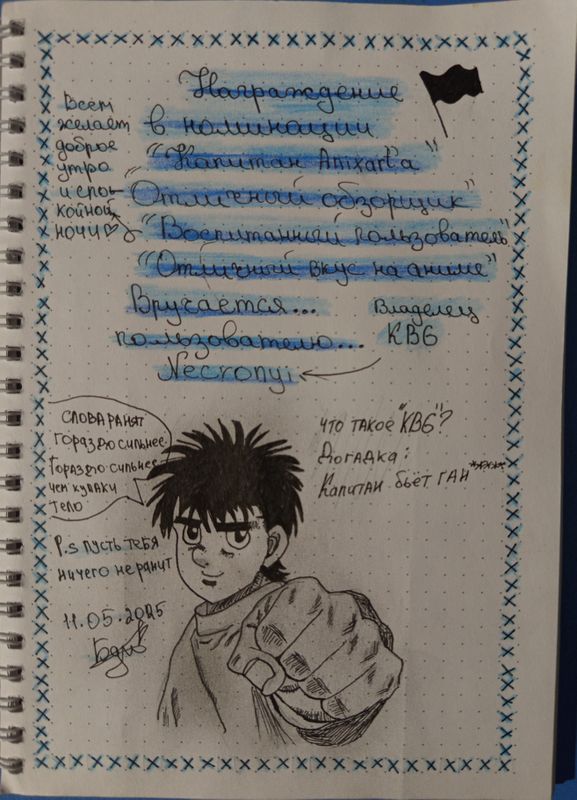 Награждение
в номинации
"Капитан Anixart'а"
"Отличный обзорщик"
"Воспитанный пользователь"
"Отличный вкус на аниме"
Вручается...
пользователю...
Necronyi
Владелец
КВ6
Всем
желает
доброе
утро
и спо-
койной
ночи♡
СЛОВА РАНЯТ
ГОРАЗДО СИЛЬНЕЕ
ГОРАЗДО СИЛЬНЕЕ
ЧЕМ КУЛАКИ
ТЕЛО
ЧТО ТАКОЕ "КВ6"?
ДОГАДКА:
КАПИТАН БЬЁТ ГАН*****
P.s ПУСТЬ ТЕБЯ
НИЧЕГО НЕ РАНИТ
11.05.2025